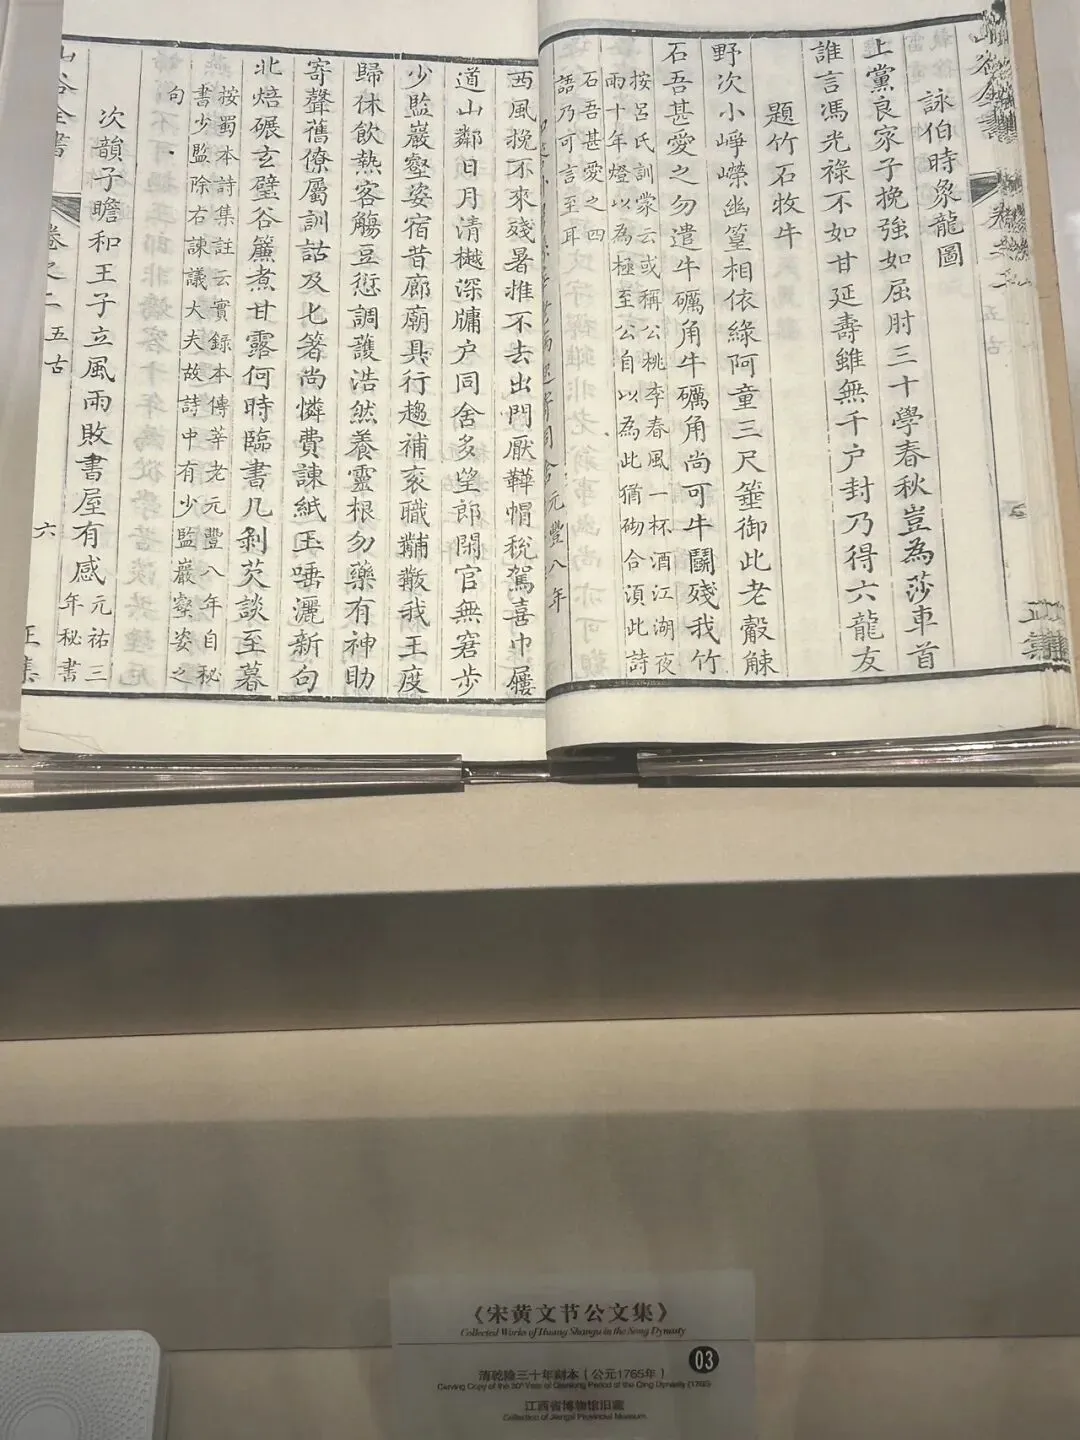 詠伯時象龍圖
上黨良家子挽強如屈肘三十學春秋豈為莎車首
誰言馮光祿不如甘延壽雖無千户封乃得六龍友
題竹石牧牛
野次小崢嶸幽篁相依綠阿童三尺箠御此老觳觫
石吾甚愛之勿遣牛礪角牛礪角尚可牛鬭殘我竹
按呂氏訓蒙云或稱公桃李春風一杯酒江湖夜
雨十年燈以為極至公自以為此猶砌合湏此詩
石吾甚愛之四
語乃可言至耳
元豐八年
西風挽不來殘暑推不去出門厭鞾帽稅駕喜巾屨
道山鄰日月清樾深牗户同舍多望郎閑官無窘步
少監巖壑姿宿昔廊廟具行趨補衮職黼黻我王度
歸休飲熱客觴豆愆調護浩然養靈根勿藥有神助
寄聲舊僚屬訓詁及匕箸尚憐費諫紙玉唾灑新句
北焙碾玄璧谷簾煮甘露何時臨書几剝芡談至暮
按蜀本詩集註云實錄本傳莘老元豐八年自秘
書少監除右諫議大夫故詩中有少監巖壑姿之
句
次韻子瞻和王子立風雨敗書屋有感
元祐三
年秘書
山谷全書 卷之二 五古 六 正集
《宋黄文节公文集》
Collected Works of Huang Shangu in the Song Dynasty
03
清乾隆三十年刻本（公元1765年）
Carving Copy of the 30th Year of Qianlong Period of the Qing Dynasty (1765)
江西省博物馆旧藏
Collection of Jiangxi Provincial Museum